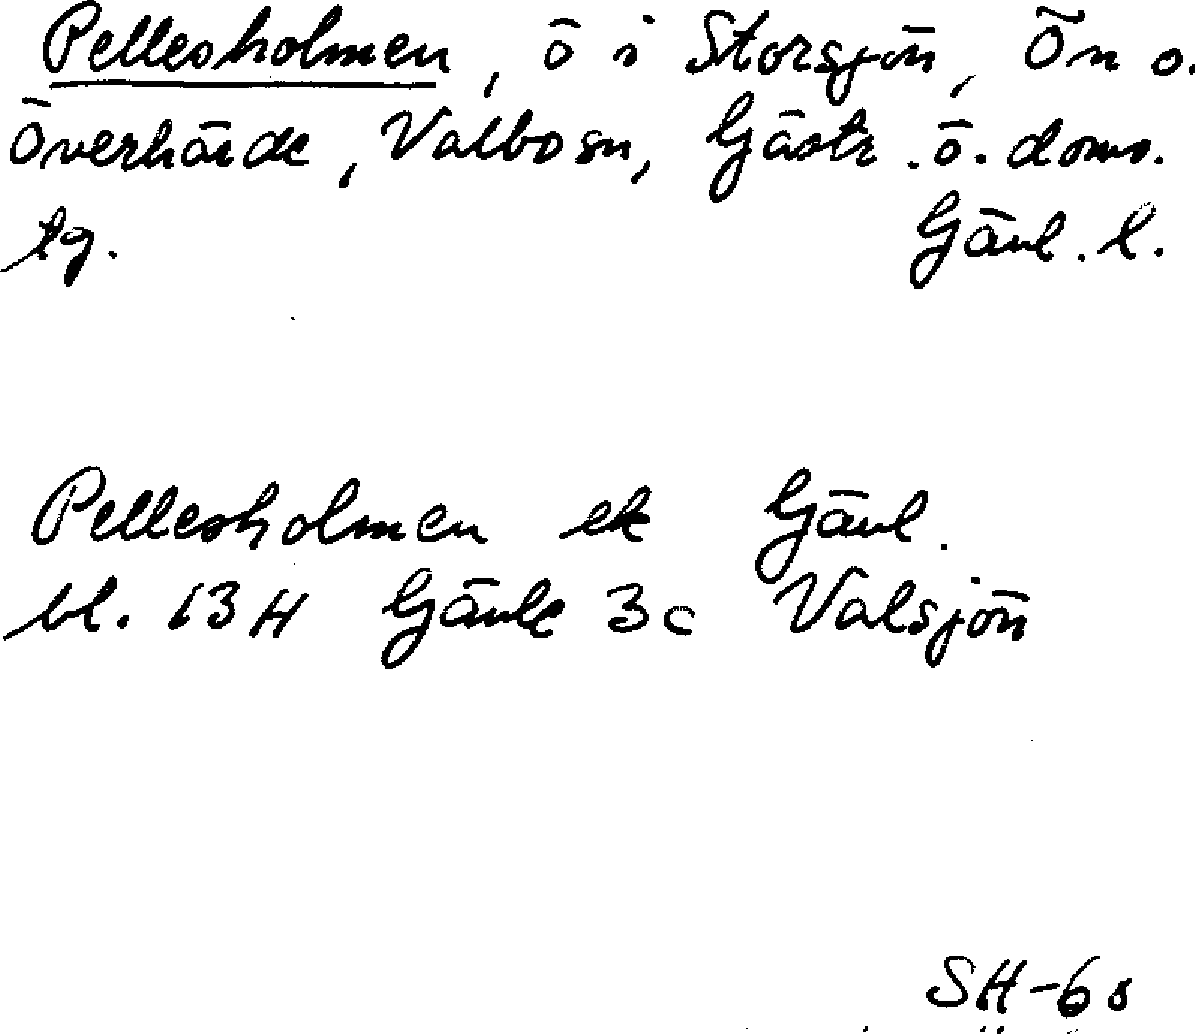 Pellesholmen, ö i Storsjön, Ön o.
Överhärde, Valbo sn, Gästr. ö. doms.
tg. Gävl. l.
Pellesholmen ek Gävl.
bl. 13H Gävle 3c Valsjön
SH-68